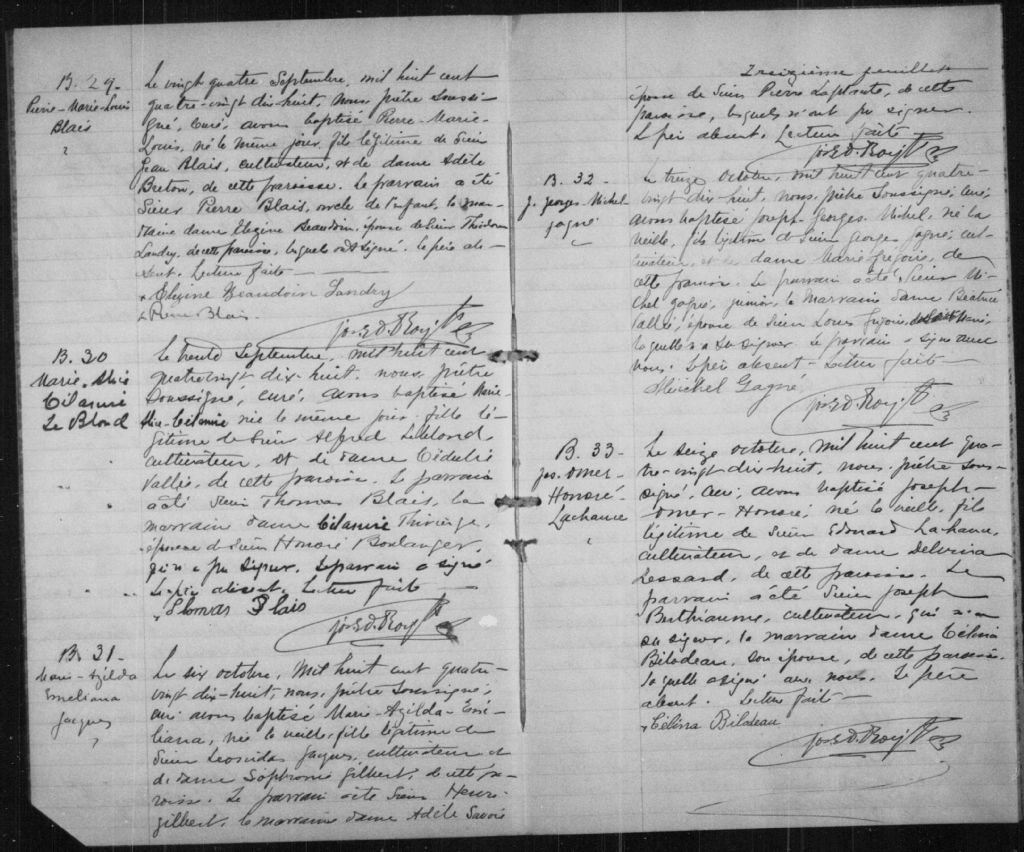 B. 29-
Pierre-Marie-Louis
Blais
Le vingt quatre Septembre, mil huit cent
quatre-vingt dix-huit, nous prêtre soussi-
gné, curé, avons baptisé Pierre-Marie-
Louis, né le même jour, fils légitime de Sieur
Jean Blais, cultivateur, et de dame Adèle
Breton, de cette paroisse. Le parrain a été
Sieur Pierre Blais, oncle de l'enfant, la mar-
raine dame Elezine Beaudoin, épouse de Sieur
Landry, de cette paroisse, lesquels ont signé. Le père ab-
sent. Lecture faite
Elezine Beaudoin Landry
Pierre Blais
Jos. E. D. Roy Ptre
B. 30
Marie-Alice
Cilanire
Le Blond
Le trente Septembre, mil huit cent
quatre-vingt dix-huit, nous, prêtre
soussigné, curé, avons baptisé Marie-
Alice-Cilanire née le même jour, fille lé-
gitime de Sieur Alfred Leblond,
cultivateur, et de dame Cédulie
Vallée, de cette paroisse. Le parrain
a été Sieur Thomas Blais, la
marraine dame Cilanire Thivierge,
épouse de Sieur Honoré Boulanger,
qui n'a pu signer. Le parrain a signé
Le père absent. Lecture faite
Thomas Blais
Jos. E. D. Roy Ptre
B. 31-
Marie-Azilda
Emeliana
Jacques
Le six octobre, mil huit cent quatre-
vingt dix-huit, nous, prêtre soussigné,
curé avons baptisé Marie-Azilda-Emé-
liana, née la veille, fille légitime de
Sieur Leonidas Jacques, cultivateur et
de dame Sophronie Gilbert, de cette pa-
roisse. Le parrain a été Sieur Henri
Gilbert, la marraine dame Adèle Savoie
Treizième feuillet
épouse de Sieur Pierre Laplante, de cette
paroisse, lesquels n'ont pu signer.
Le père absent. Lecture faite
Jos. E. D. Roy Ptre
B. 32-
J. Georges-Michel
Gagné
Le treize octobre, mil huit cent quatre-
vingt dix-huit, nous, prêtre soussigné, curé,
avons baptisé Joseph-Georges-Michel, né la
veille, fils légitime de Sieur Georges Gagné, cul-
tivateur, et de dame Marie Grégoire, de
cette paroisse. Le parrain a été Sieur Mi-
chel Gagné, junior, la marraine dame Béatrice
Vallée, épouse de Sieur Louis Grégoire,
laquelle n'a su signer. Le parrain a signé avec
nous. Le père absent. Lecture faite
Michel Gagné
Jos. E. D. Roy Ptre
B. 33-
Jos. Omer-
Honoré-
Lachance
Le seize octobre, mil huit cent qua-
tre-vingt dix-huit, nous, prêtre sous-
signé, curé, avons baptisé Joseph-
Omer-Honoré, né la veille, fils
légitime de Sieur Edouard Lachance,
cultivateur, et de dame Delvina
Lessard, de cette paroisse. Le
parrain a été Sieur Joseph
Berthiaume, cultivateur, qui n'a
su signer, la marraine dame Célina
Bilodeau, son épouse, de cette paroisse,
laquelle a signé avec nous. Le père
absent. Lecture faite
Célina Bilodeau
Jos. E. D. Roy Ptre